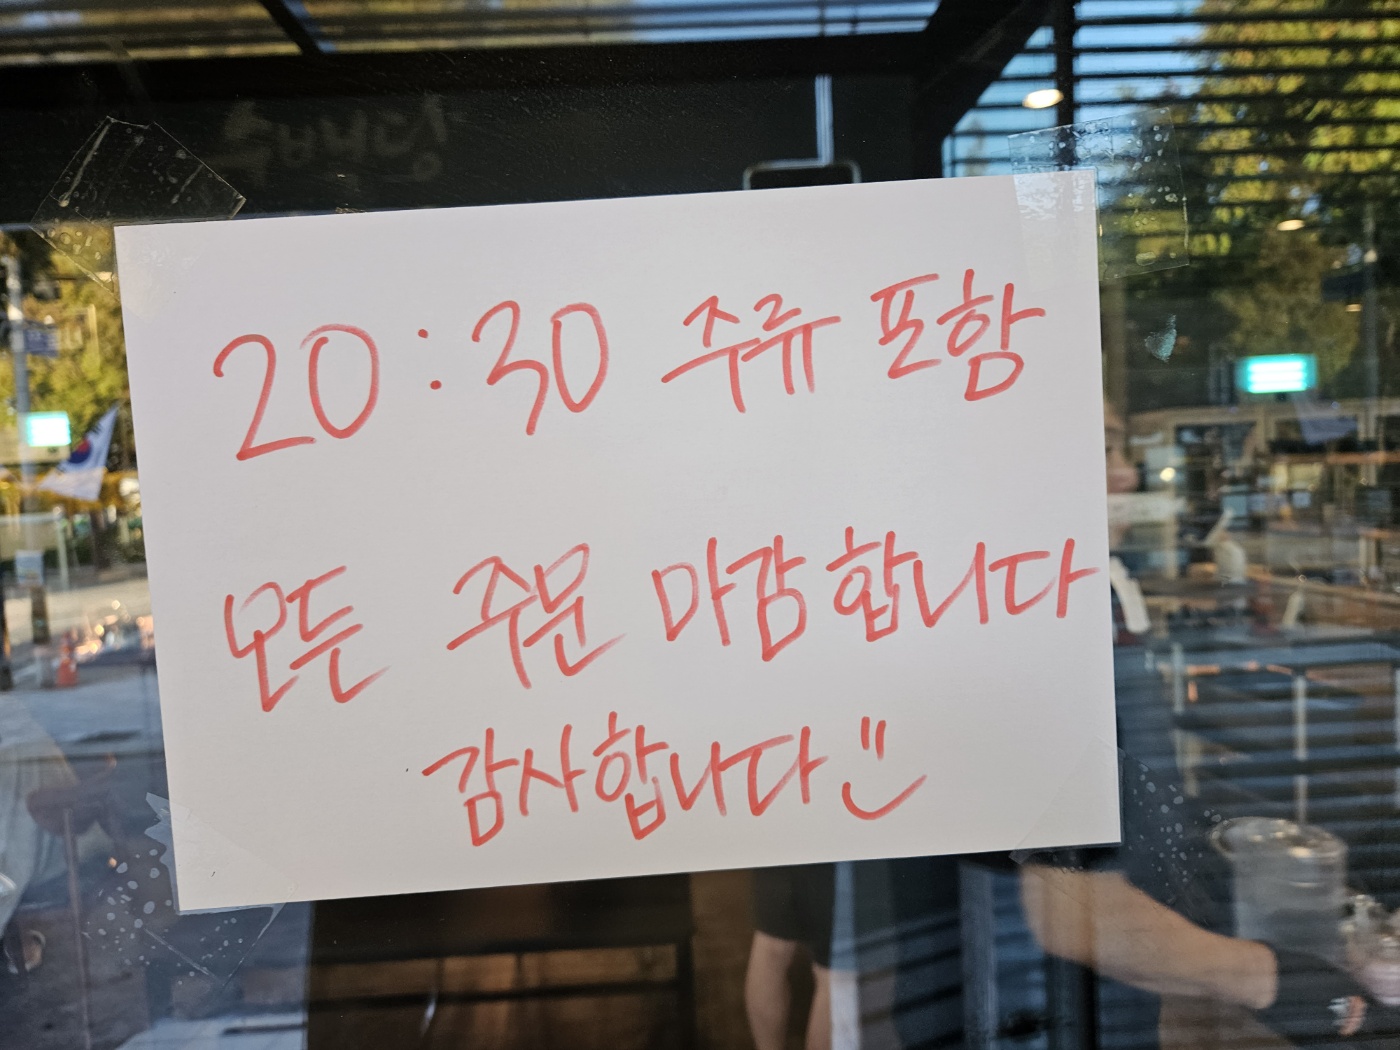 20:30 주류 포함
모든 주문 마감합니다
감사합니다